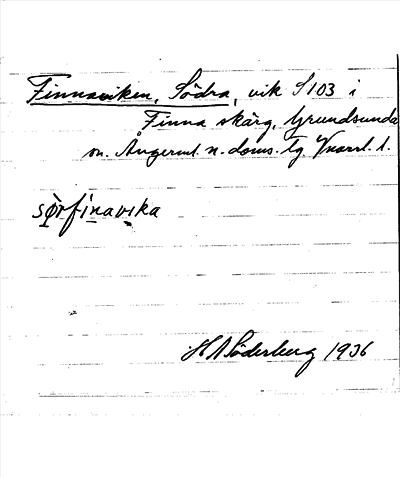 Finnaviken, Södra, vik S 103 i
Finna skärg, Grundsunda
sn. Ångerml. n. doms. tg. Vnorrl. l.
sørfinavika
H Söderberg 1936